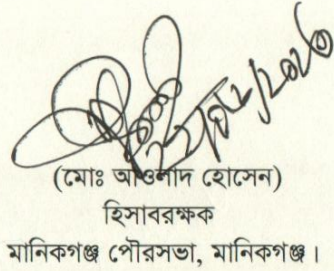 (মোঃ আওলাদ হোসেন)
হিসাবরক্ষক
মানিকগঞ্জ পৌরসভা, মানিকগঞ্জ।